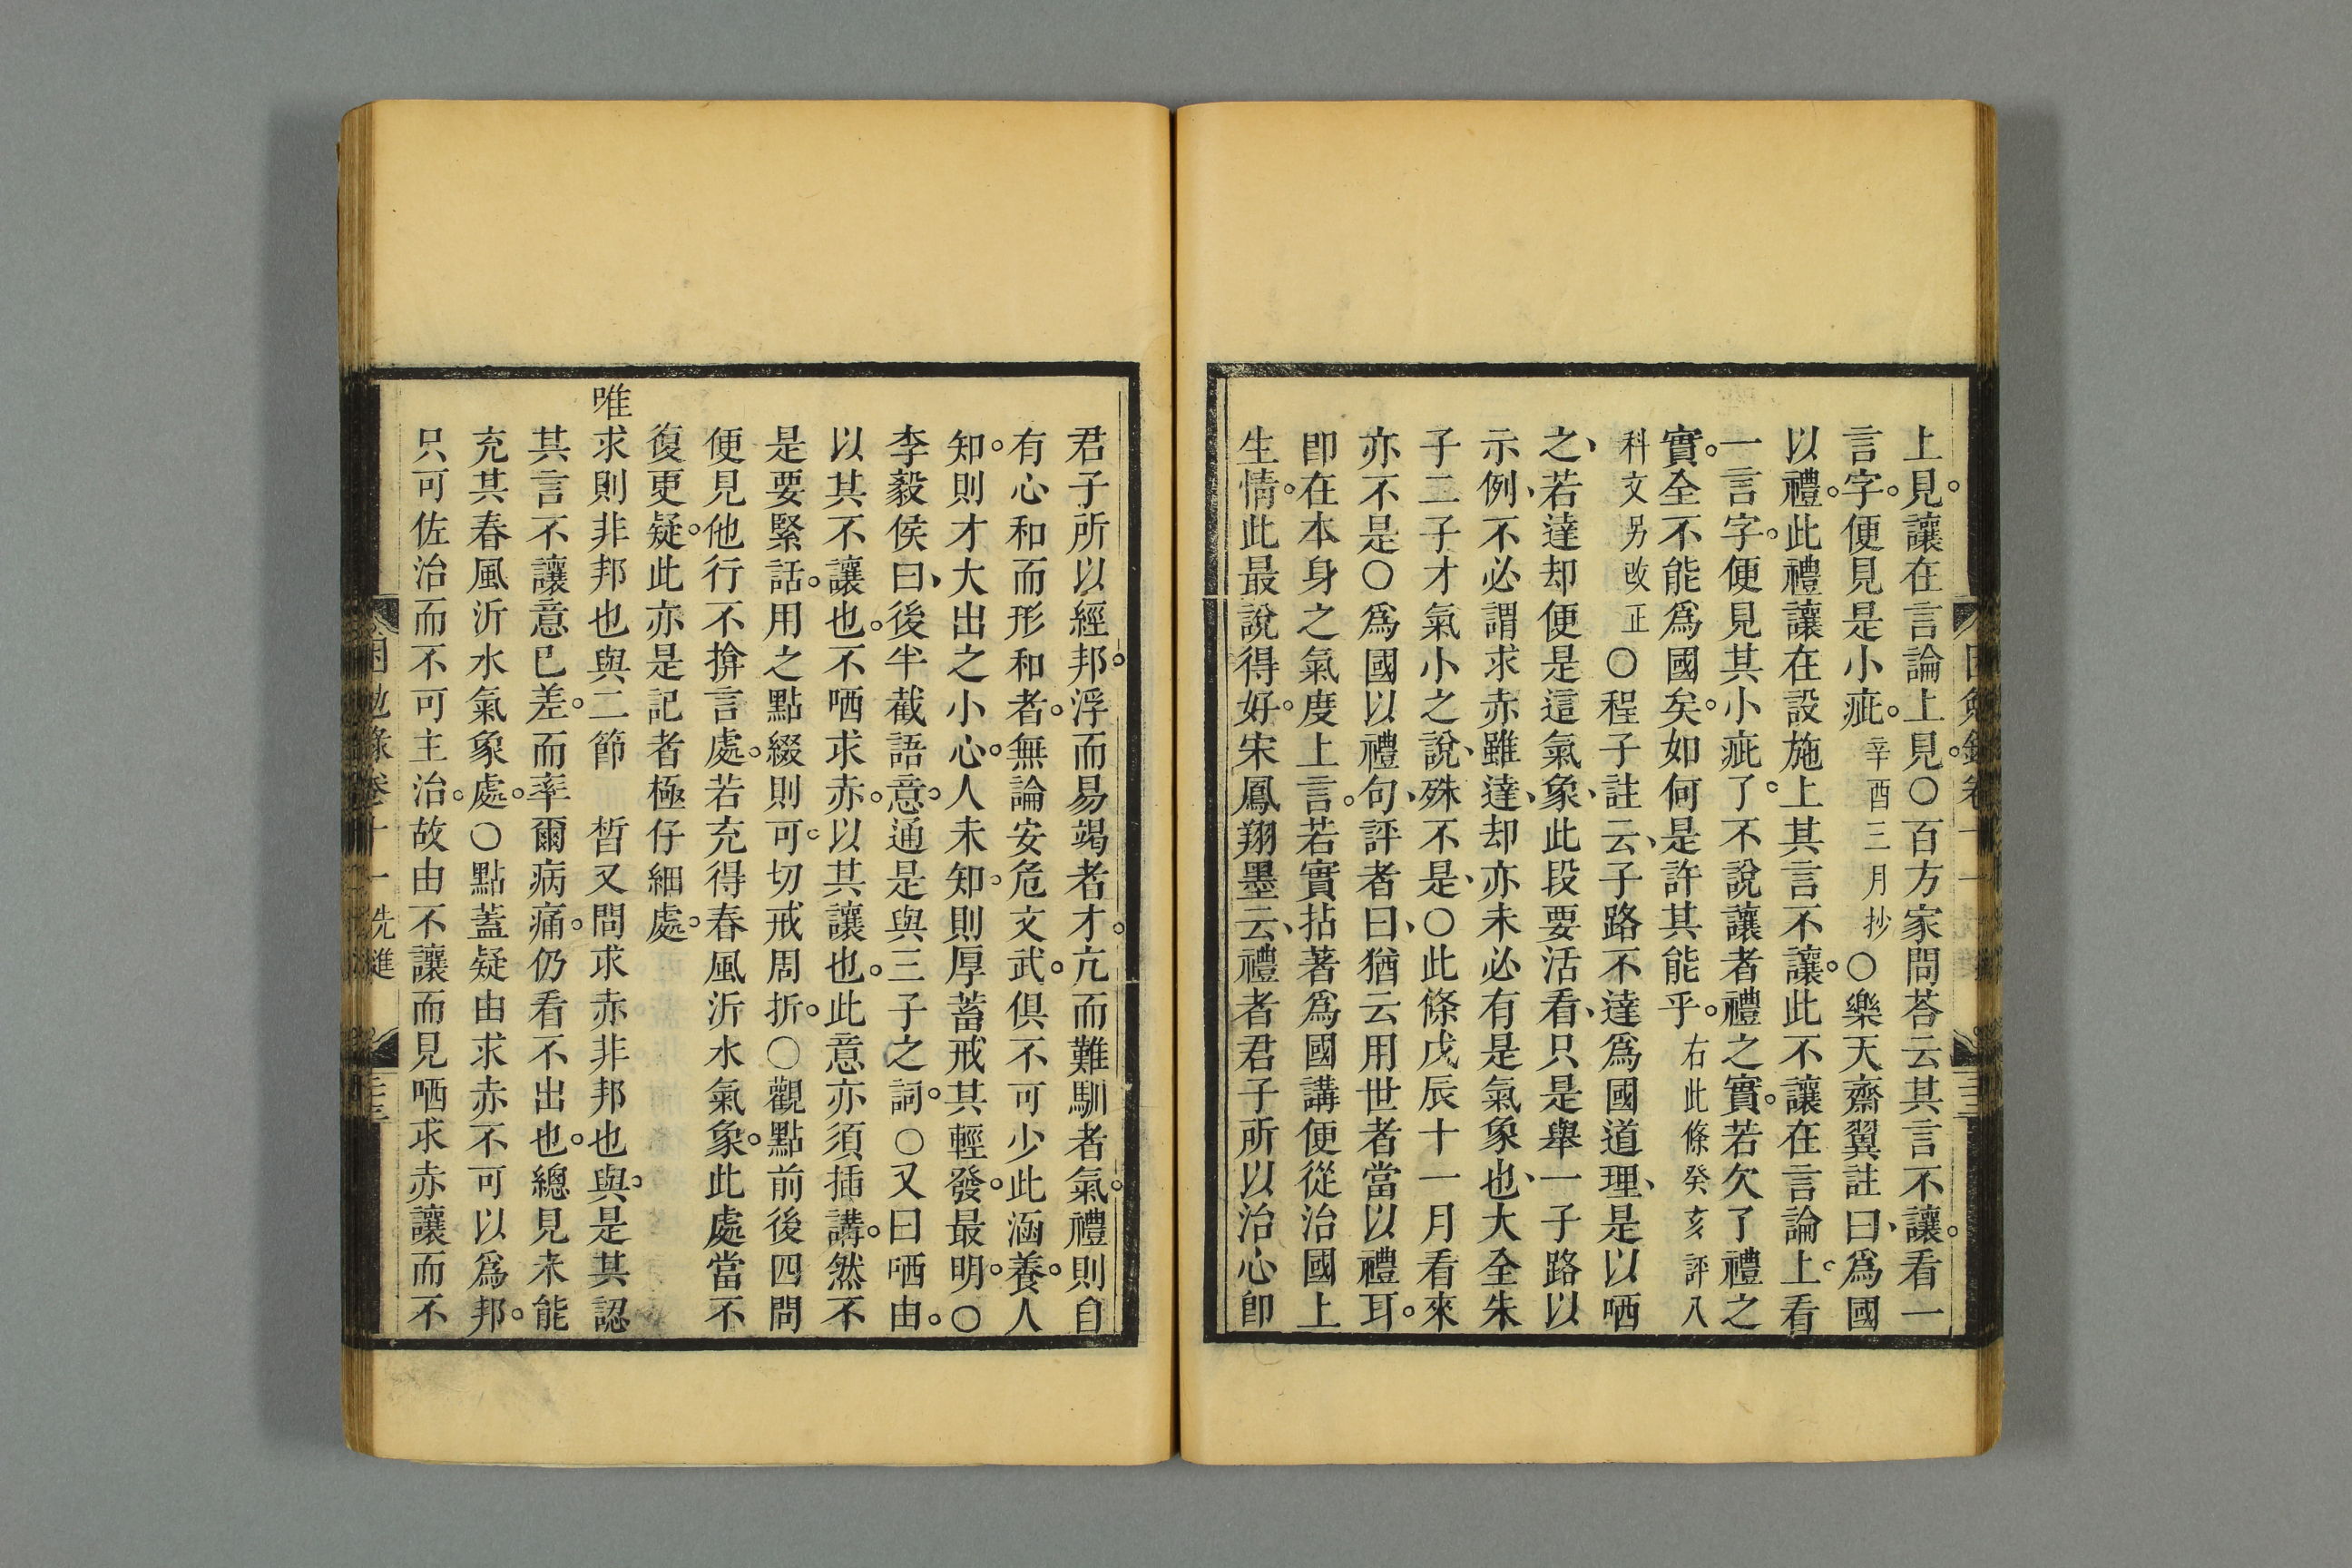 上見。讓在言論上見。○百方家問荅云其言不讓。看一
言字。便見是小疵。辛酉三月抄○樂天齋翼註曰、爲國
以禮。此禮讓在設施上其言不讓。此不讓在言論上。看
一言字。便見其小疵了。不說讓者禮之實。若欠了禮之
實。全不能爲國矣。如何是許其能乎。右此條癸亥評八
科文另改正○程子註云、子路不達爲國道理、是以哂
之、若達却便是這氣象、此段要活看、只是舉一子路以
示例、不必謂求赤雖達、却亦未必有是氣象也、大全朱
子二子才氣小之說、殊不是、○此條戊辰十一月看來
亦不是○爲國以禮句、評者曰、猶云用世者當以禮耳。
卽在本身之氣度上言。若實拈著爲國講便從治國上
生情。此最說得好。宋鳳翔墨云、禮者君子所以治心卽
君子所以經邦。浮而易竭者才。亢而難馴者氣。禮則自
有心和而形和者。無論安危文武。俱不可少此涵養。人
知。則才大出之小心。人未知。則厚蓄戒其輕發。最明。○
李毅侯曰、後半截語意。通是與三子之詞。○又曰哂由。
以其不讓也。不哂求赤。以其讓也。此意亦須插講。然不
是要緊話。用之點綴則可。切戒周折。○觀點前後四問
便見他行不揜言處。若充得春風沂水氣象。此處當不
復更疑。此亦是記者極仔細處。
唯求則非邦也與二節　皙又問求赤非邦也與。是其認
其言不讓意已差。而率爾病痛。仍看不出也。總見未能
充其春風沂水氣象處。○點蓋疑由求赤不可以爲邦。
只可佐治而不可主治。故由不讓而見哂求赤讓而不
困勉錄卷十一 先進